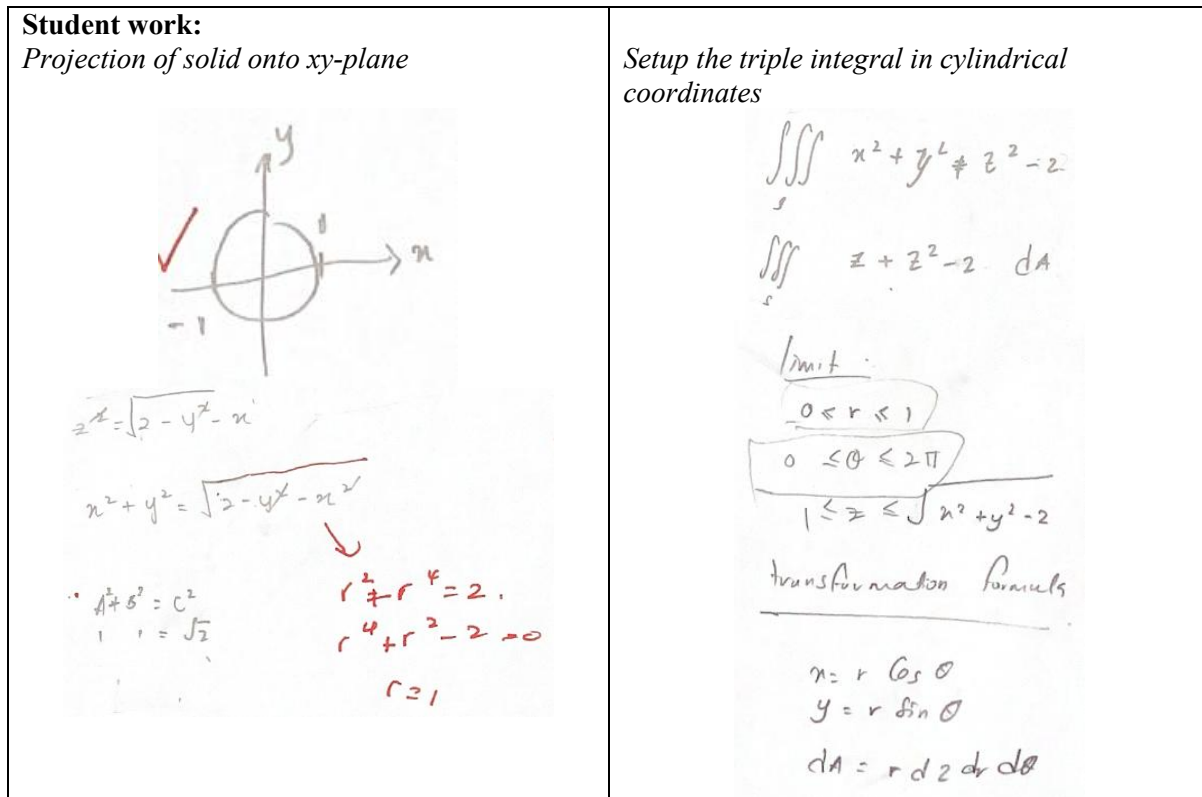 Student work:
Projection of solid onto xy-plane
y
1
x
- 1
z² = √2 - y² - x
x² + y² = √2 - y² - x²
r² + r⁴ = 2.
r⁴ + r² - 2 = 0
r = 1
A² + B² = C²
1 1 = √2
Setup the triple integral in cylindrical
coordinates
∫∫∫ x² + y² + z² - 2
s
∫∫∫ z + z² - 2 dA
s
limit
0 ≤ r ≤ 1
0 ≤ θ ≤ 2π
1 ≤ z ≤ √x² + y² - 2
transformation formula
x = r Cos θ
y = r Sin θ
dA = r dz dr dθ